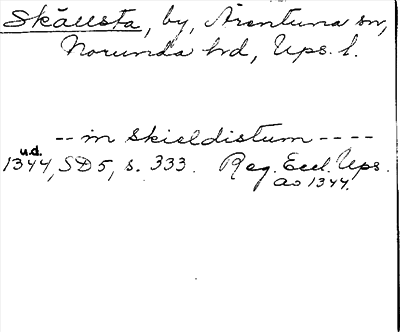 Skällsta, by, Ärentuna sn,
Norunda hd, Ups. l.
-- in skieldistum ----
u.d.
1344, SD 5, s. 333. Reg. Eccl. Ups.
ao 1344.